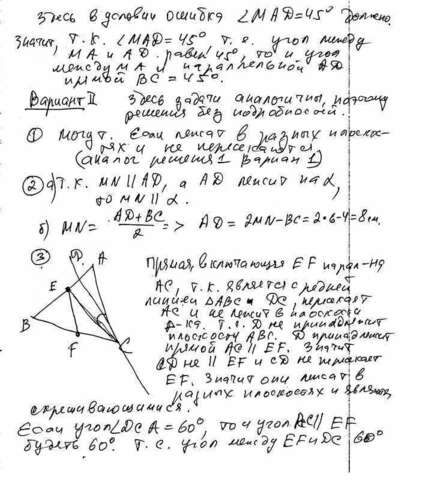 Здесь в условии ошибка ∠MAD=45° должно.
Значит, т.к. ∠MAD=45° т.е. угол между
MA и AD равен 45°, то и угол
между MA и параллельной AD
прямой BC = 45°.
Вариант II Здесь задачи аналогичны, поэтому
решения без подробностей.
① Могут. Если лежат в разных плоскос-
тях и не пересекаются
(аналог решения 1 Вариан 1)
② а) Т.к. MN ∥ AD, а AD лежит на α,
то MN ∥ α.
б) MN = (AD+BC)/2 => AD = 2MN-BC = 2·6-4 = 8см.
③ Прямая, включающая EF парал-на
AC, т.к. является средней
линией △ABC и DC, пересекает
AC и не лежит в плоскости
D A
E
B
F
C
△-ка. Т.е. D не принадлежит
плоскости ABC. D принадлежит
прямой AC ∥ EF. Значит
CD не ∥ EF и CD не пересекает
EF. Значит они лежат в
разных плоскостях и являются
скрещивающимися.
Если угол ∠DCA = 60°, то и угол AC ∥ EF
будет 60°. Т.е. угол между EF и DC 60°